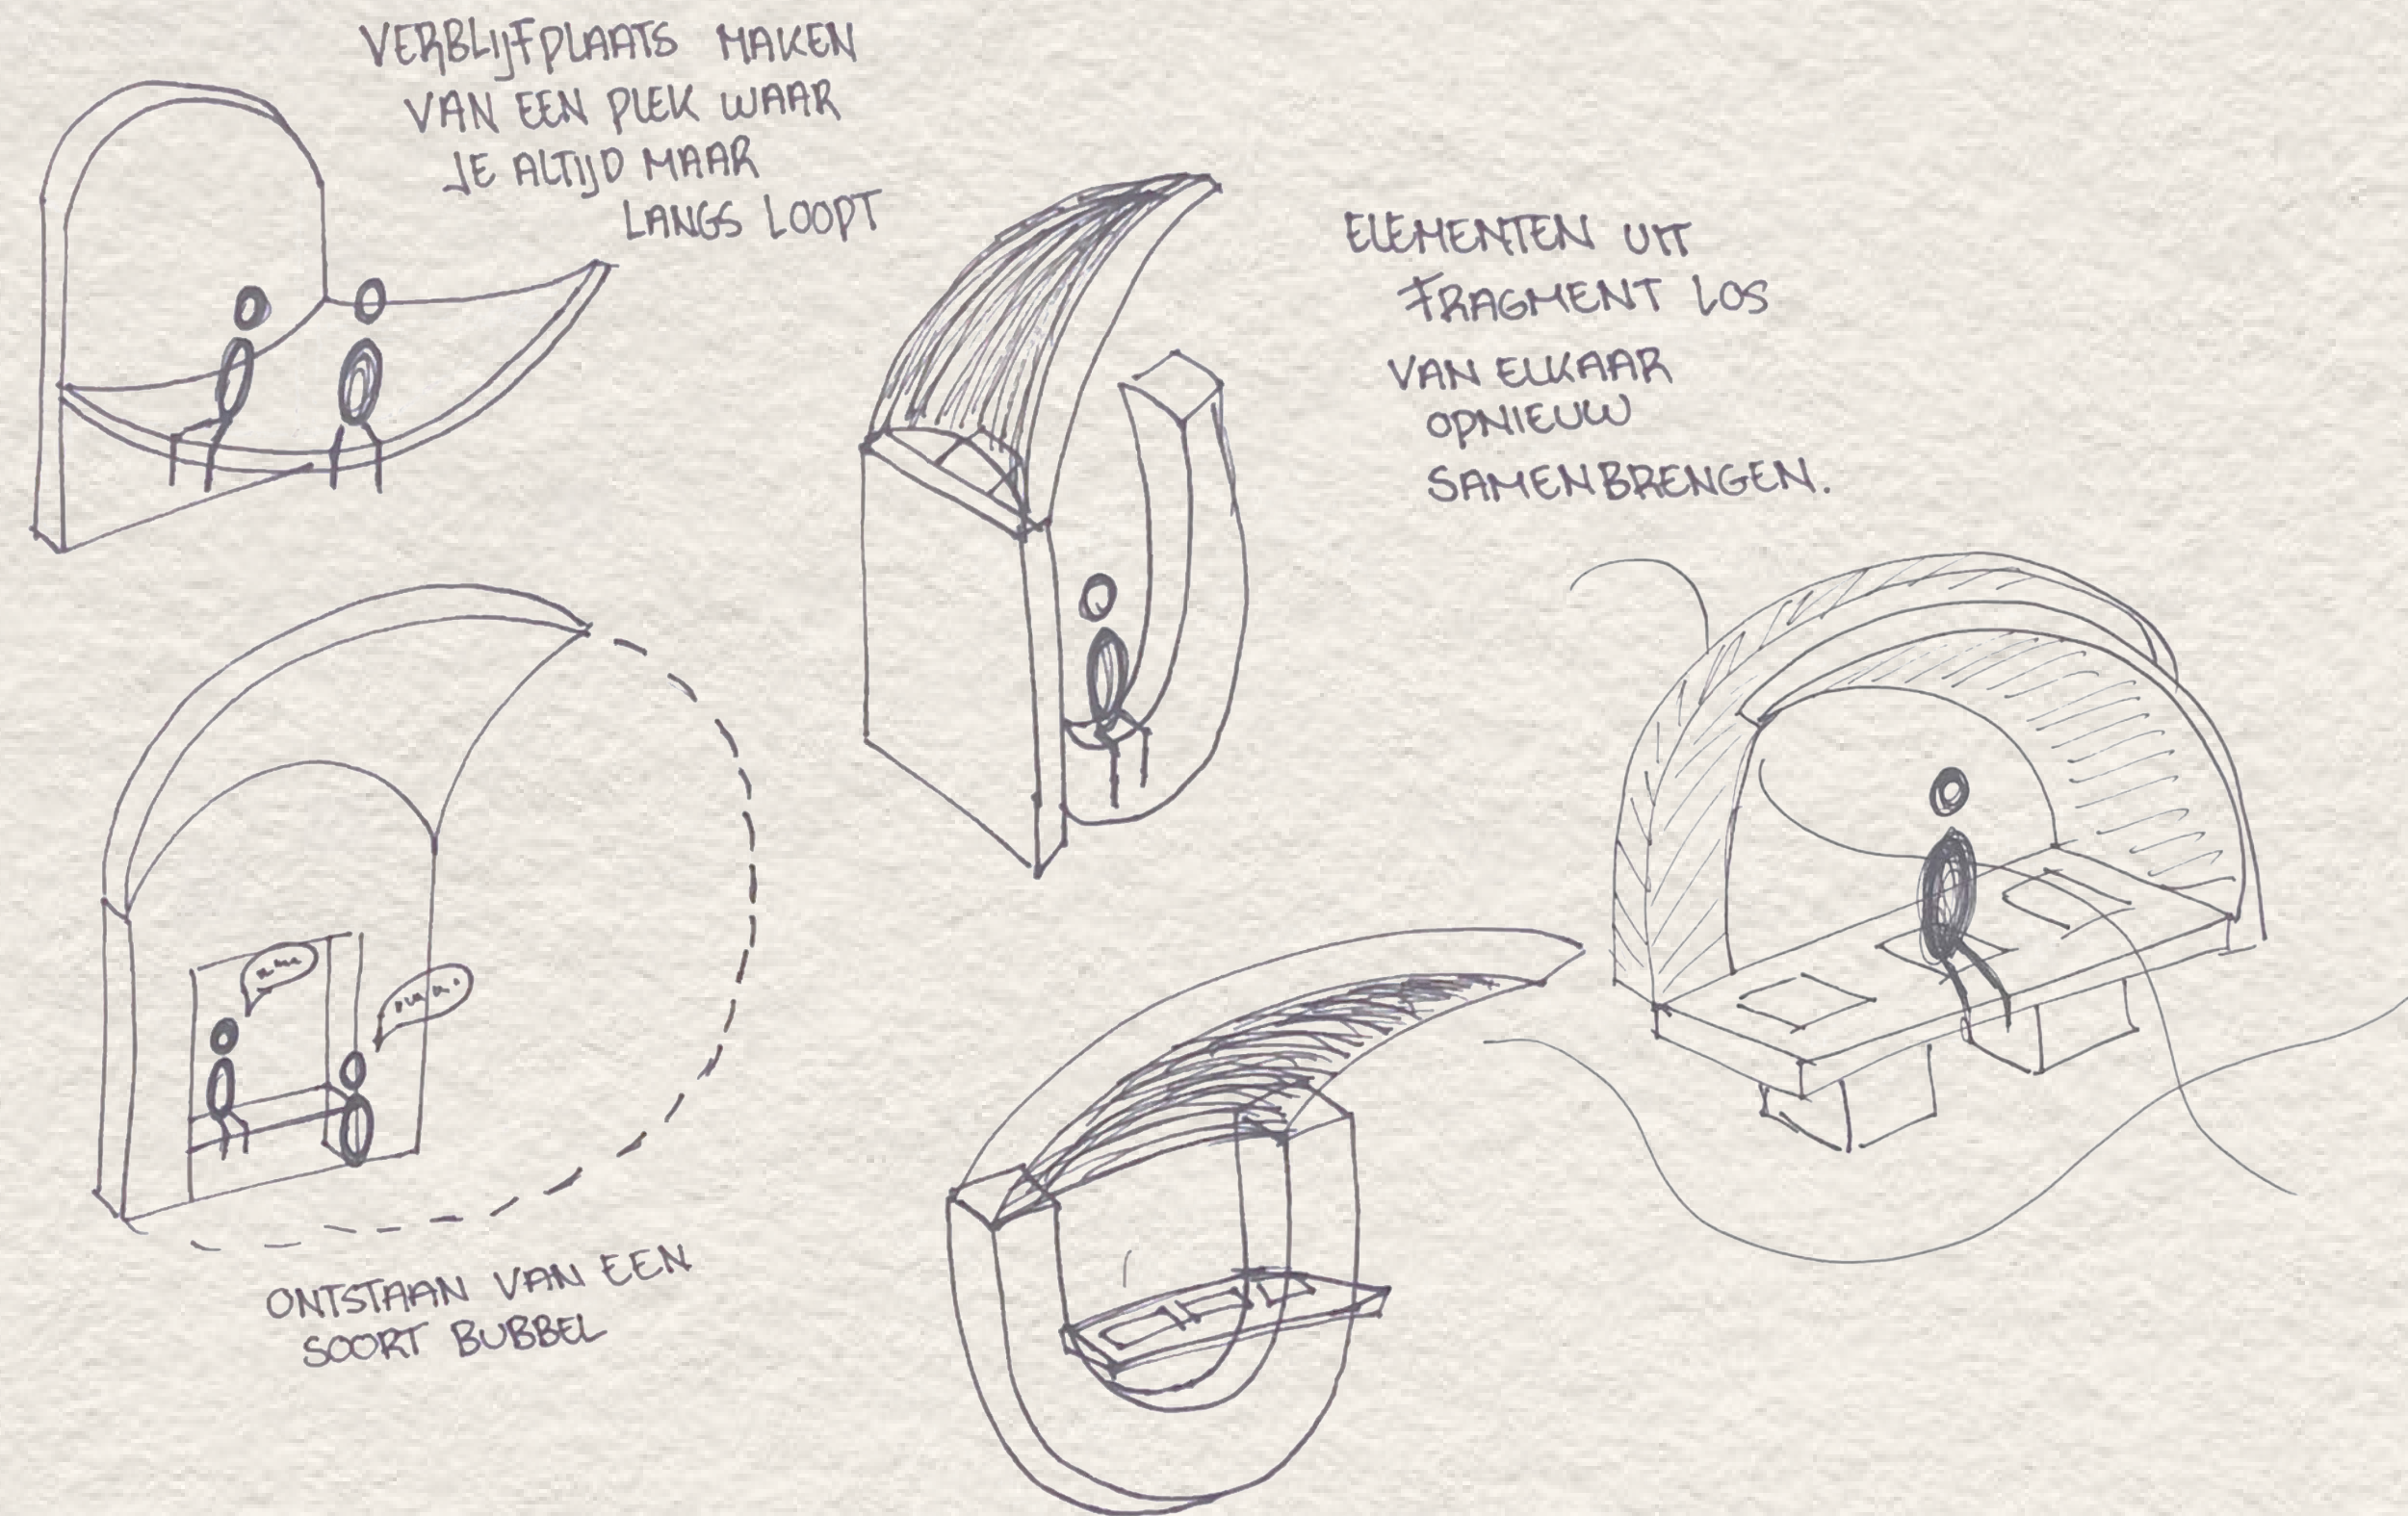 VERBLIJFPLAATS MAKEN
VAN EEN PLEK WAAR
JE ALTIJD MAAR
LANGS LOOPT
ELEMENTEN UIT
FRAGMENT LOS
VAN ELKAAR
OPNIEUW
SAMENBRENGEN.
ONTSTAAN VAN EEN
SOORT BUBBEL